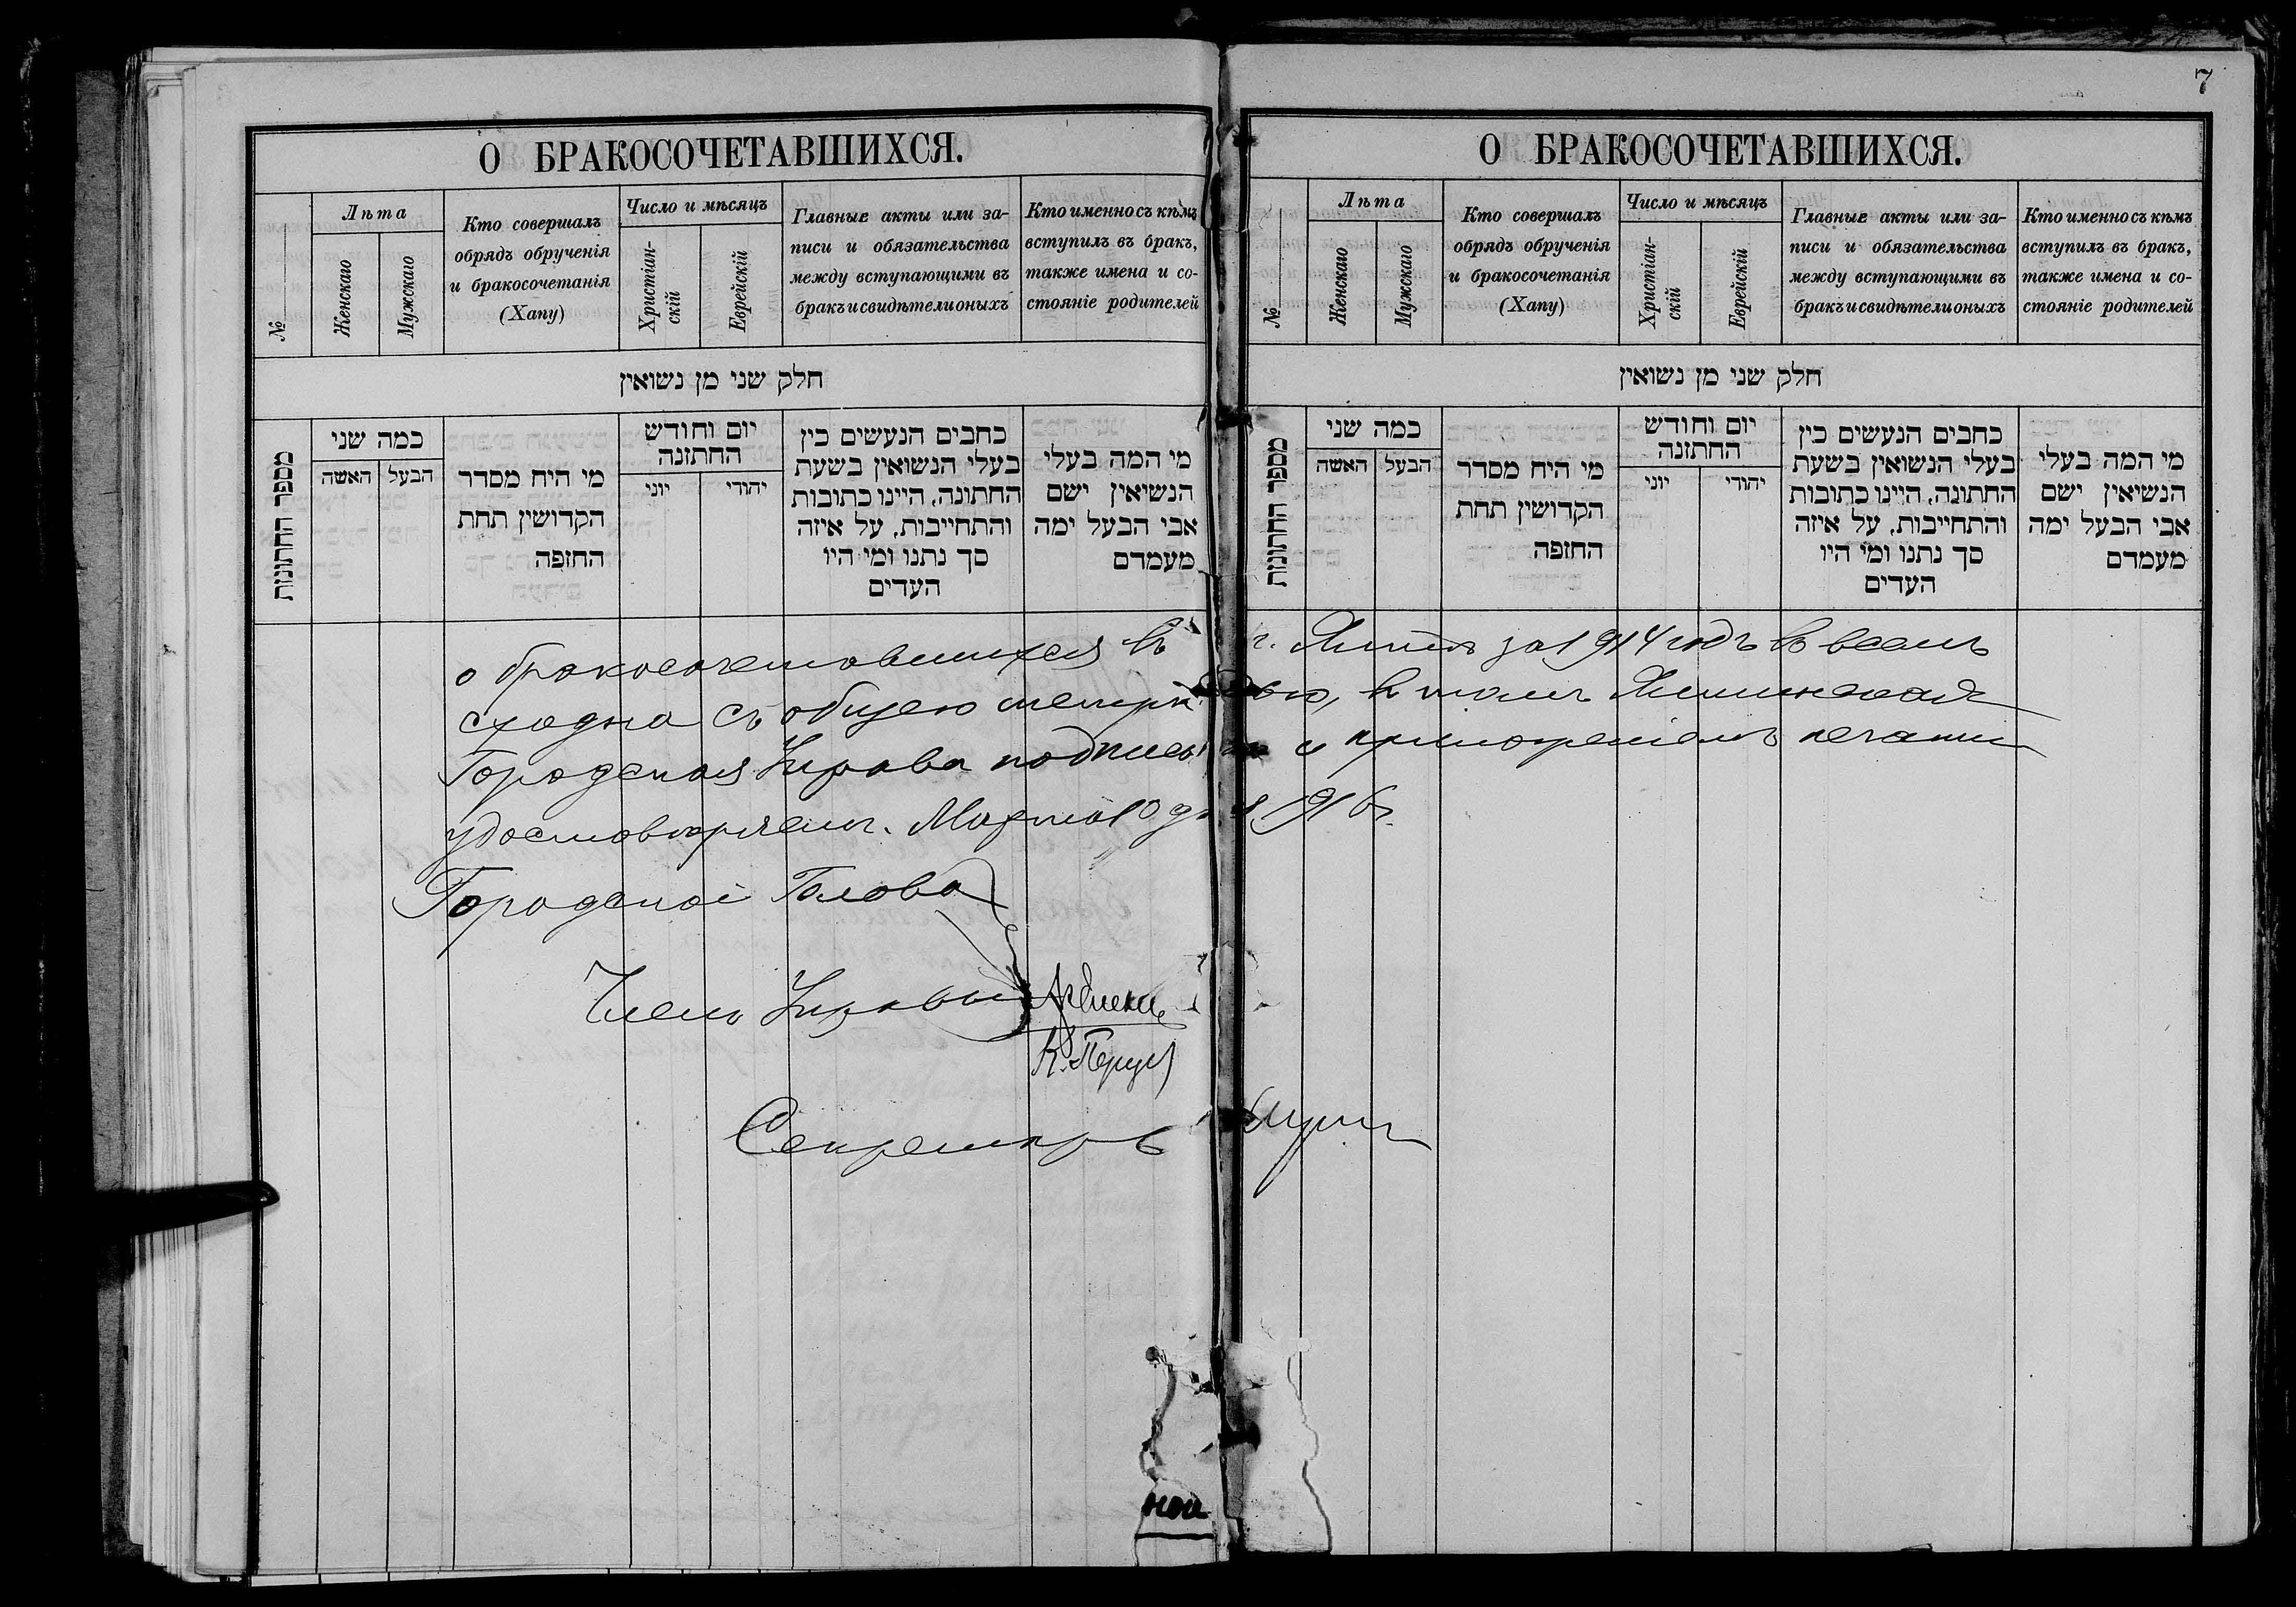 7
О БРАКОСОЧЕТАВШИХСЯ.
№
Лѣта
Женскаго
Мужскаго
Кто совершалъ
обрядъ обрученія
и бракосочетанія
(Хапу)
Число и мѣсяцъ
Христіан-
скій
Еврейскій
Главные акты или за-
писи и обязательства
между вступающими въ
бракъ и свидѣтели оныхъ
Кто именно съ кѣмъ
вступилъ въ бракъ,
также имена и со-
стояніе родителей
חלק שני מן נשואין
מספר החתונות
כמה שני
האשה
הבעל
מי היח מסדר
הקדושין תחת
החופה
יום וחודש
החתונה
יוני
יהודי
כתבים הנעשים בין
בעלי הנשואין בשעת
החתונה, היינו כתובות
והתחייבות, על איזה
סך נתנו ומי היו
העדים
מי המה בעלי
הנשיאין ישם
אבי הבעל ימה
מעמדם
О БРАКОСОЧЕТАВШИХСЯ.
№
Лѣта
Женскаго
Мужскаго
Кто совершалъ
обрядъ обрученія
и бракосочетанія
(Хапу)
Число и мѣсяцъ
Христіан-
скій
Еврейскій
Главные акты или за-
писи и обязательства
между вступающими въ
бракъ и свидѣтели оныхъ
Кто именно съ кѣмъ
вступилъ въ бракъ,
также имена и со-
стояніе родителей
חלק שני מן נשואין
מספר החתונות
כמה שני
האשה
הבעל
מי היח מסדר
הקדושין תחת
החופה
יום וחודש
החתונה
יוני
יהודי
כתבים הנעשים בין
בעלי הנשואין בשעת
החתונה, היינו כתובות
והתחייבות, על איזה
סך נתנו ומי היו
העדים
מי המה בעלי
הנשיאין ישם
אבי הבעל ימה
מעמדם
о бракосочетавшихся въ г. за 1914 годъ во всемъ
сходна съ общею тетрадью, въ томъ
Городская Управа подписью и приложеніемъ печати
удостовѣряетъ. Марта 10 дня 1916 г.
Городской Голова
Членъ Управы
Секретарь
ной